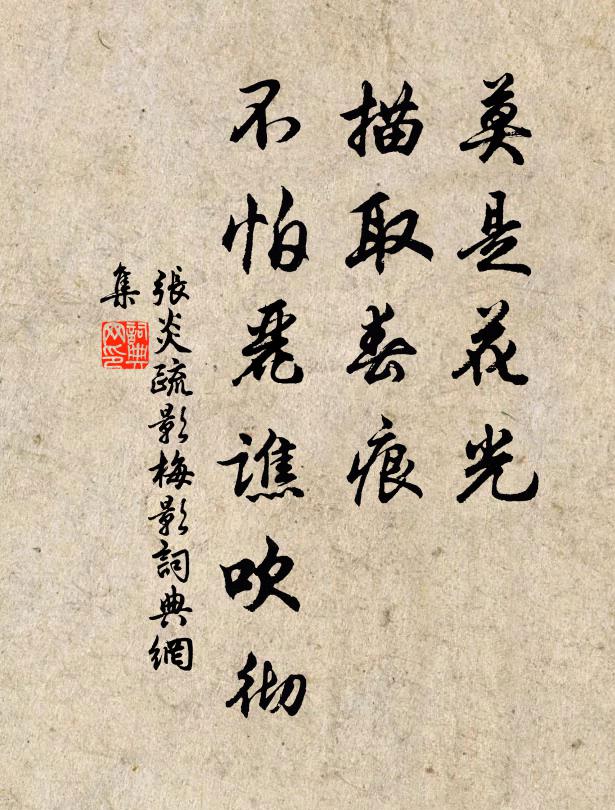 莫是花光
描取春痕
不怕麗譙吹彻
張炎疏影梅影詞典網
集
詞典网印